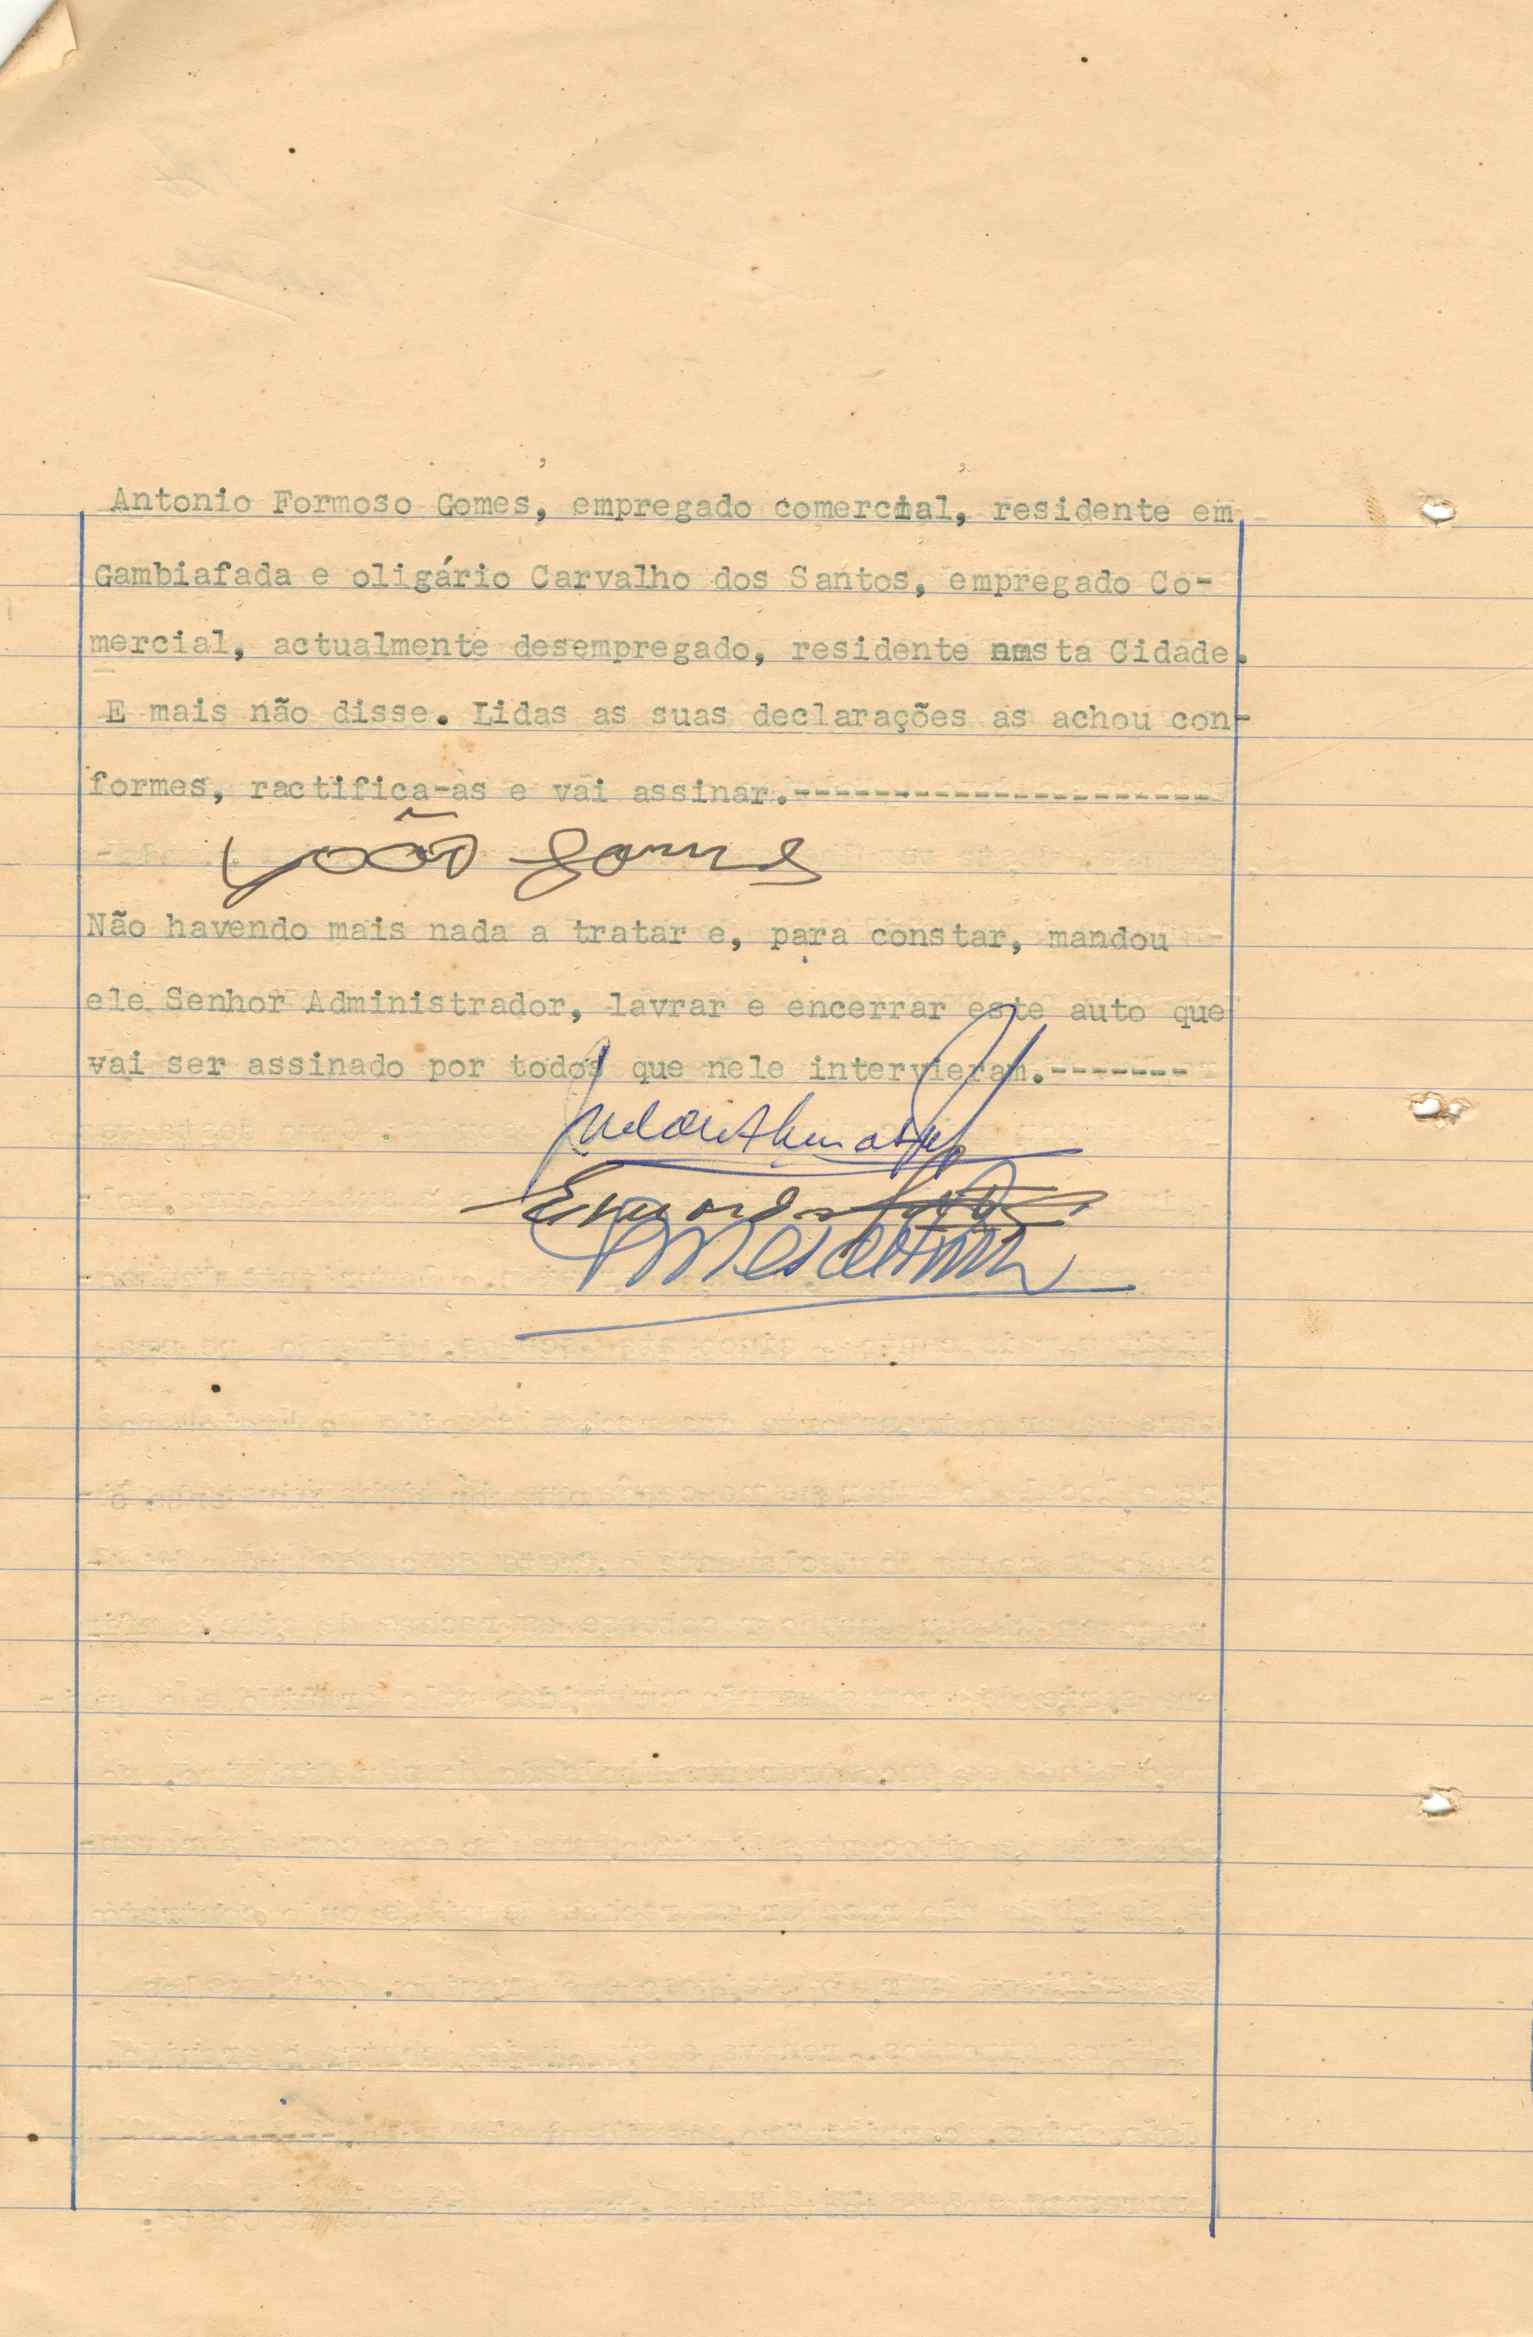 Antonio Formoso Gomes, empregado comercial, residente em
Gambiafada e oligário Carvalho dos Santos, empregado Co-
mercial, actualmente desempregado, residente nesta Cidade.
E mais não disse. Lidas as suas declarações as achou con-
formes, ractifica-as e vai assinar.---------------------
João Gomes
Não havendo mais nada a tratar e, para constar, mandou
ele Senhor Administrador, lavrar e encerrar este auto que
vai ser assinado por todos que nele intervieram.-------